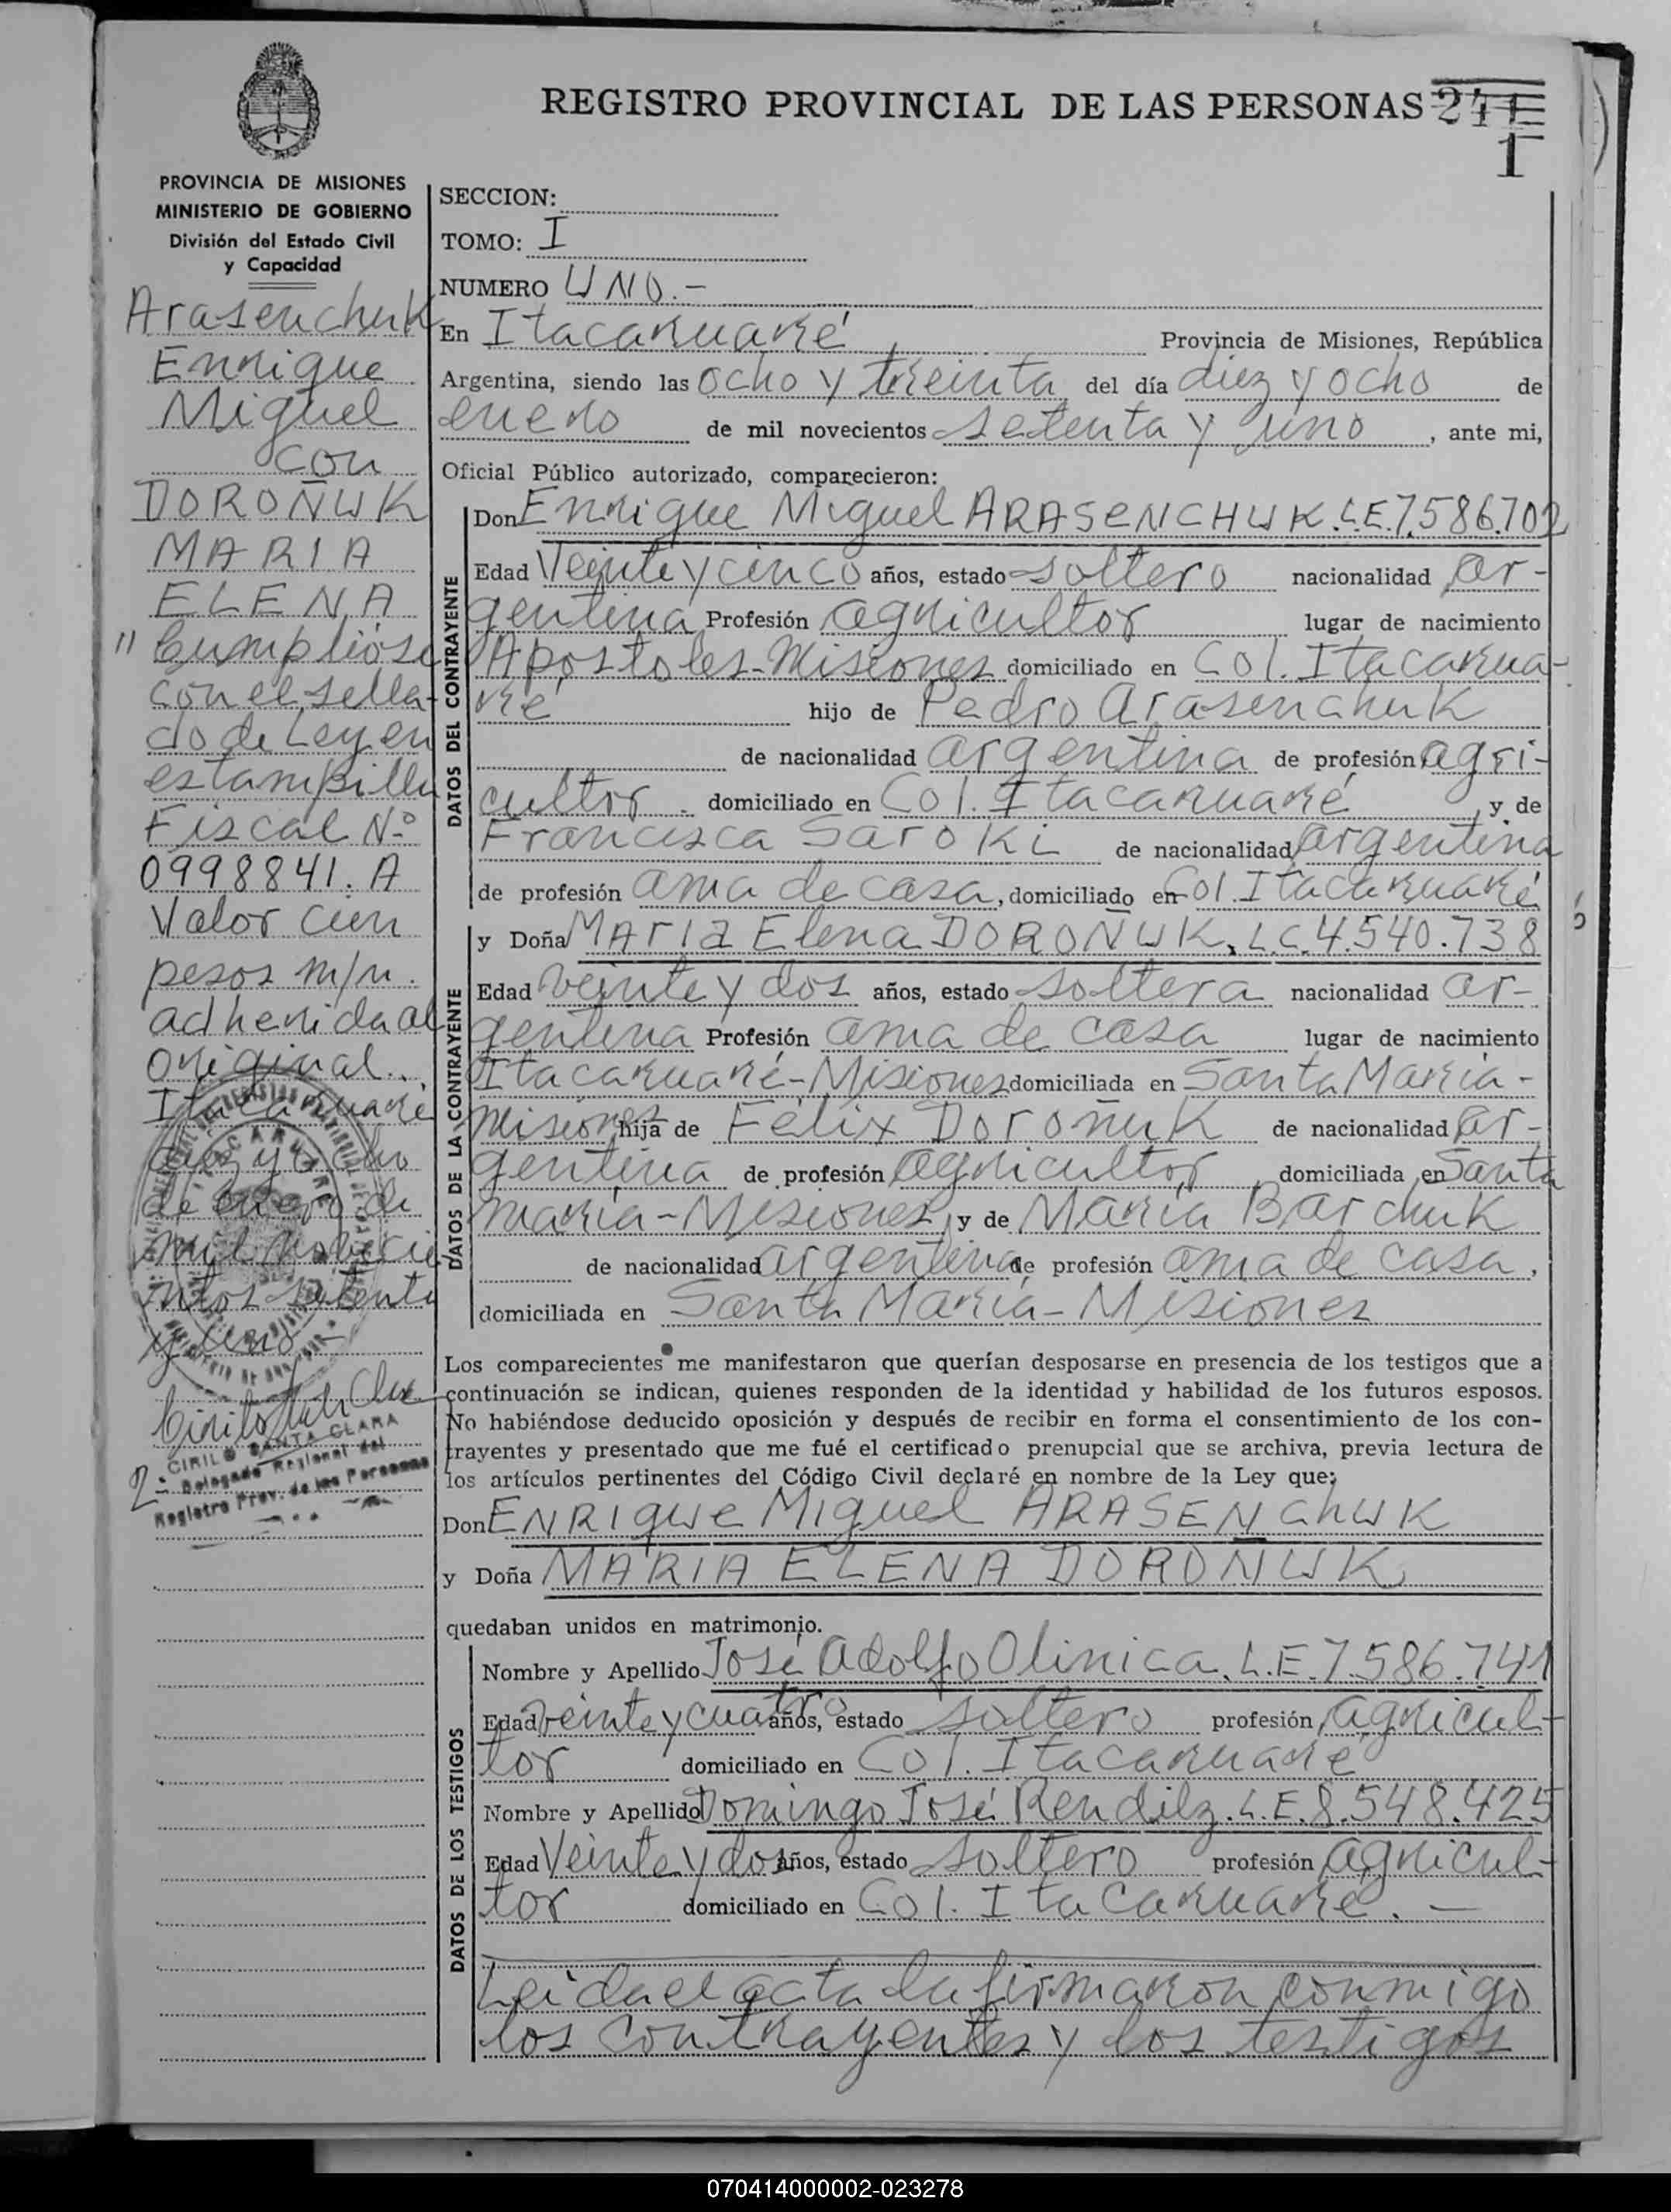 REGISTRO PROVINCIAL DE LAS PERSONAS 241
1
PROVINCIA DE MISIONES
MINISTERIO DE GOBIERNO
División del Estado Civil
y Capacidad
Arasenchuk
Enrique
Miguel
con
DOROÑUK
MARIA
ELENA
" Cumplióse
con el sella-
do de Ley en
estampilla
Fiscal Nº
0998841. A
Valor cien
pesos m/n.
adherida al
original..
Itacaruaré
diez y ocho
de enero de
mil novecie
ntos setenta
y uno.-
CIRILO SANTA CLARA
Delegado Regional del
Registro Prov. de las Personas
SECCION:
TOMO: I
NUMERO UNO.-
En Itacaruaré, Provincia de Misiones, República
Argentina, siendo las ocho y treinta del día diez y ocho de
enero de mil novecientos setenta y uno, ante mi,
Oficial Público autorizado, comparecieron:
DATOS DEL CONTRAYENTE
Don Enrique Miguel ARASENCHUK. L.E. 7.586.702
Edad Veinte y cinco años, estado soltero nacionalidad ar-
gentina Profesión agricultor lugar de nacimiento
Apostoles-Misiones domiciliado en Col. Itacarua-
ré hijo de Pedro Arasenchuk
de nacionalidad argentina de profesión agri-
cultor. domiciliado en Col. Itacaruaré y de
Francisca Saroki de nacionalidad argentina
de profesión ama de casa, domiciliado en Col. Itacaruaré
DATOS DE LA CONTRAYENTE
y Doña Maria Elena DOROÑUK, L.C. 4.540.738
Edad veinte y dos años, estado soltera nacionalidad ar-
gentina Profesión ama de casa lugar de nacimiento
Itacaruaré-Misiones domiciliada en Santa María-
Misiones hija de Félix Doroñuk de nacionalidad ar-
gentina de profesión agricultor domiciliada en Santa
María-Misiones, y de María Barchuk
de nacionalidad argentina de profesión ama de casa,
domiciliada en Santa María-Misiones
Los comparecientes me manifestaron que querían desposarse en presencia de los testigos que a
continuación se indican, quienes responden de la identidad y habilidad de los futuros esposos.
No habiéndose deducido oposición y después de recibir en forma el consentimiento de los con-
trayentes y presentado que me fué el certificado prenupcial que se archiva, previa lectura de
los artículos pertinentes del Código Civil declaré en nombre de la Ley que:
Don ENRIQUE MIGUEL ARASENCHUK
y Doña MARIA ELENA DOROÑUK
quedaban unidos en matrimonio.
DATOS DE LOS TESTIGOS
Nombre y Apellido José Adolfo Olinica. L.E. 7.586.741
Edad veinte y cuatro años, estado soltero profesión agricul-
tor domiciliado en Col. Itacaruaré
Nombre y Apellido Domingo José Rendilz. L.E. 8.548.425
Edad Veinte y dos años, estado soltero profesión agricul-
tor domiciliado en Col. Itacaruaré. -
Leida el acta la firmaron conmigo
los contrayentes y los testigos
070414000002-023278